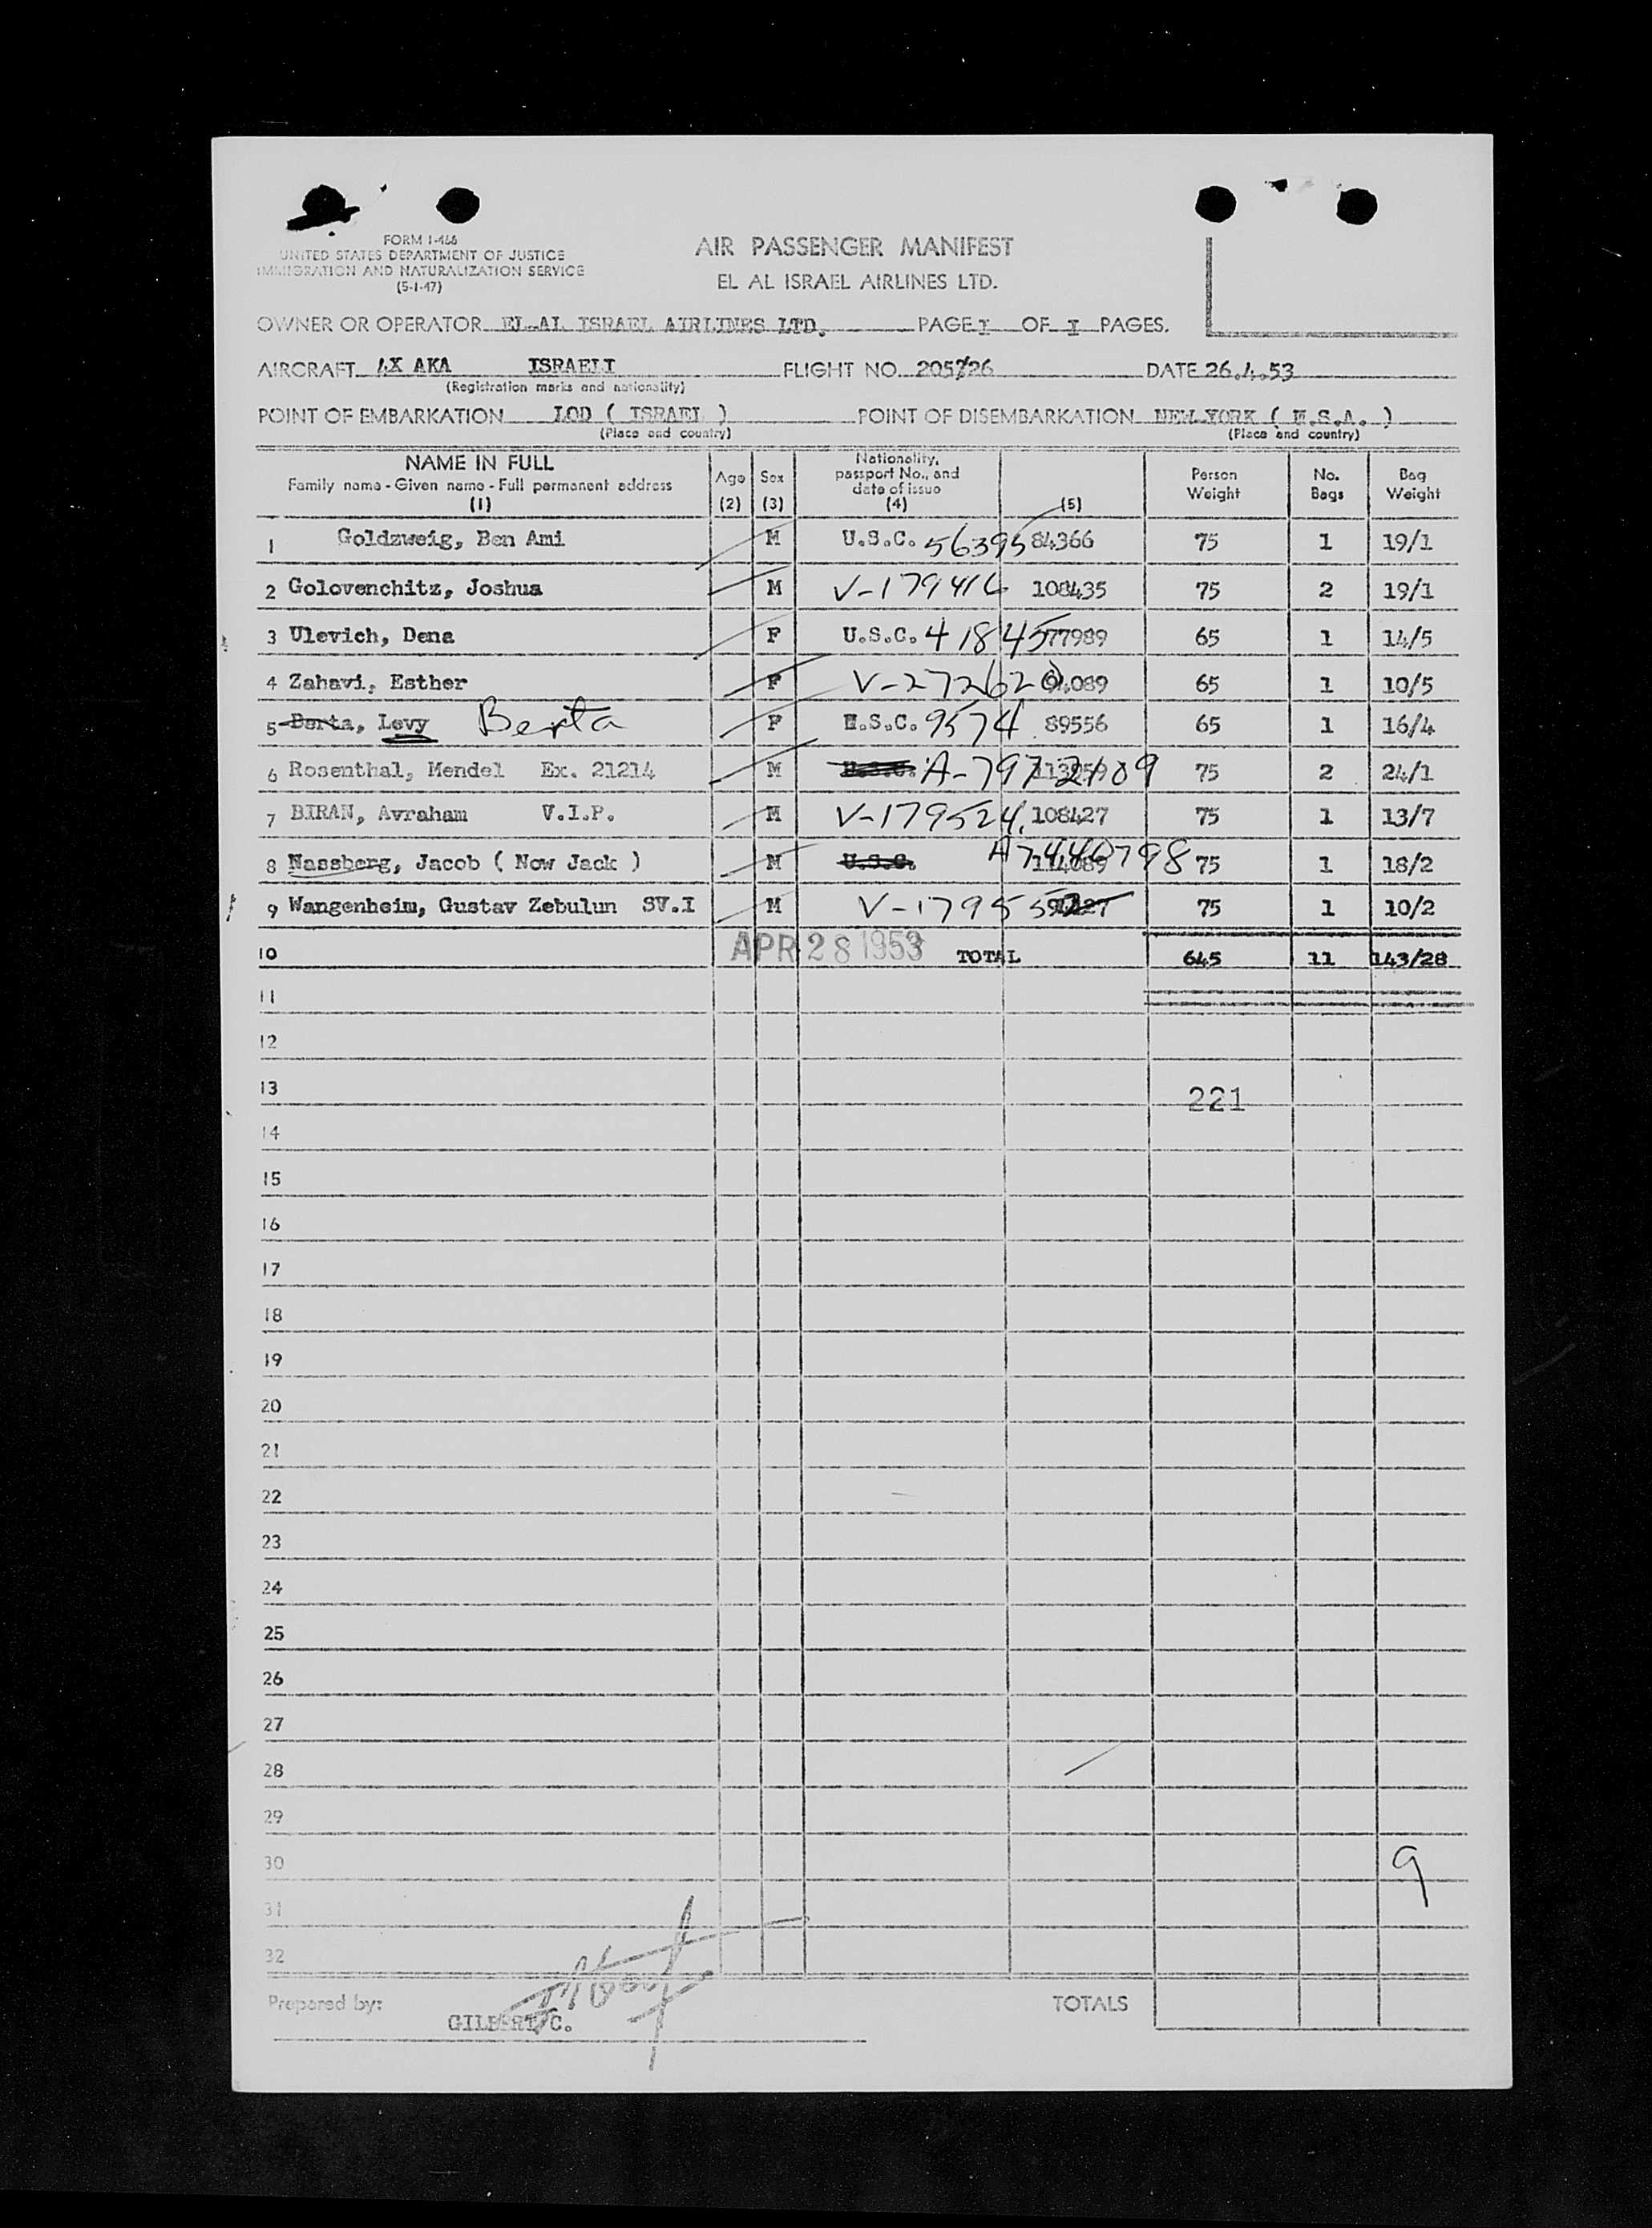 FORM I-466
UNITED STATES DEPARTMENT OF JUSTICE
IMMIGRATION AND NATURALIZATION SERVICE
(5-1-47)
AIR PASSENGER MANIFEST
EL AL ISRAEL AIRLINES LTD.
OWNER OR OPERATOR EL-AL ISRAEL AIRLINES LTD. PAGE I OF I PAGES.
AIRCRAFT 4X AKA ISRAELI FLIGHT NO. 205/26 DATE 26.4.53
(Registration marks and nationality)
POINT OF EMBARKATION LOD ( ISRAEL ) POINT OF DISEMBARKATION NEW YORK ( U.S.A. )
(Place and country) (Place and country)
NAME IN FULL Family name - Given name - Full permanent address (1) Age (2) Sex (3) Nationality, passport No., and date of issue (4) (5) Person Weight No. Bags Bag Weight
1 Goldzweig, Ben Ami M U.S.C. 56395 84366 75 1 19/1
2 Golovenchitz, Joshua M V-179416 108435 75 2 19/1
3 Ulevich, Dena F U.S.C. 41845 77989 65 1 14/5
4 Zahavi, Esther F V-272620 94089 65 1 10/5
5 Berta, Levy Berta F U.S.C. 9574 89556 65 1 16/4
6 Rosenthal, Mendel Ex. 21214 M U.S.C. 75 2 24/1
7 BIRAN, Avraham V.I.P. M V-179524 108427 75 1 13/7
8 Nassberg, Jacob ( Now Jack ) M U.S.C. A7440798 75 1 18/2
9 Wangenheim, Gustav Zebulun SV.I M 75 1 10/2
10 APR 28 1953 TOTAL 645 11 143/28
11
12
13 221
14
15
16
17
18
19
20
21
22
23
24
25
26
27
28
29
30 9
31
32
Prepared by: GILBERT C. TOTALS